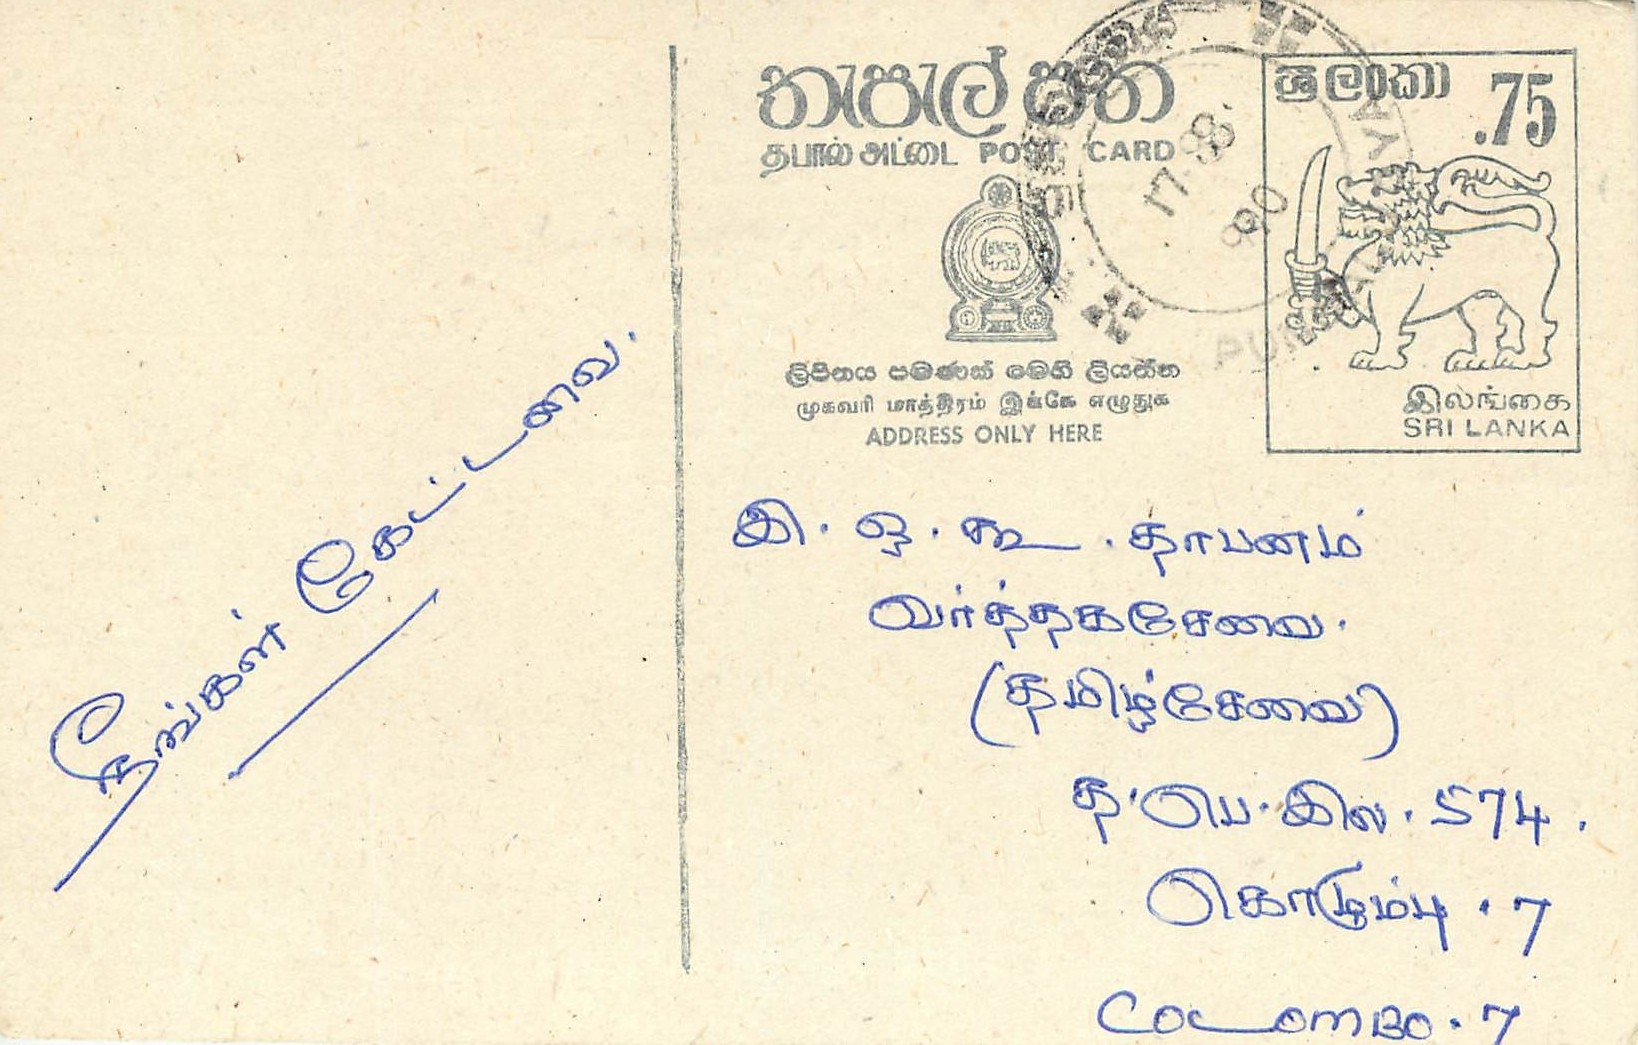 තැපැල් පත
தபால் அட்டை POST CARD
ශ්‍රී ලංකා .75
17·88
90
ලිපිනය පමණක් මෙහි ලියන්න
முகவரி மாத்திரம் இங்கே எழுதுக
ADDRESS ONLY HERE
இலங்கை
SRI LANKA
நீங்கள் கேட்டவை.
இ. ஒ. கூ. தாபனம்
வர்த்தகசேவை.
(தமிழ்சேவை)
த. பெ. இல. 574.
கொழும்பு . 7
COLOMBO . 7